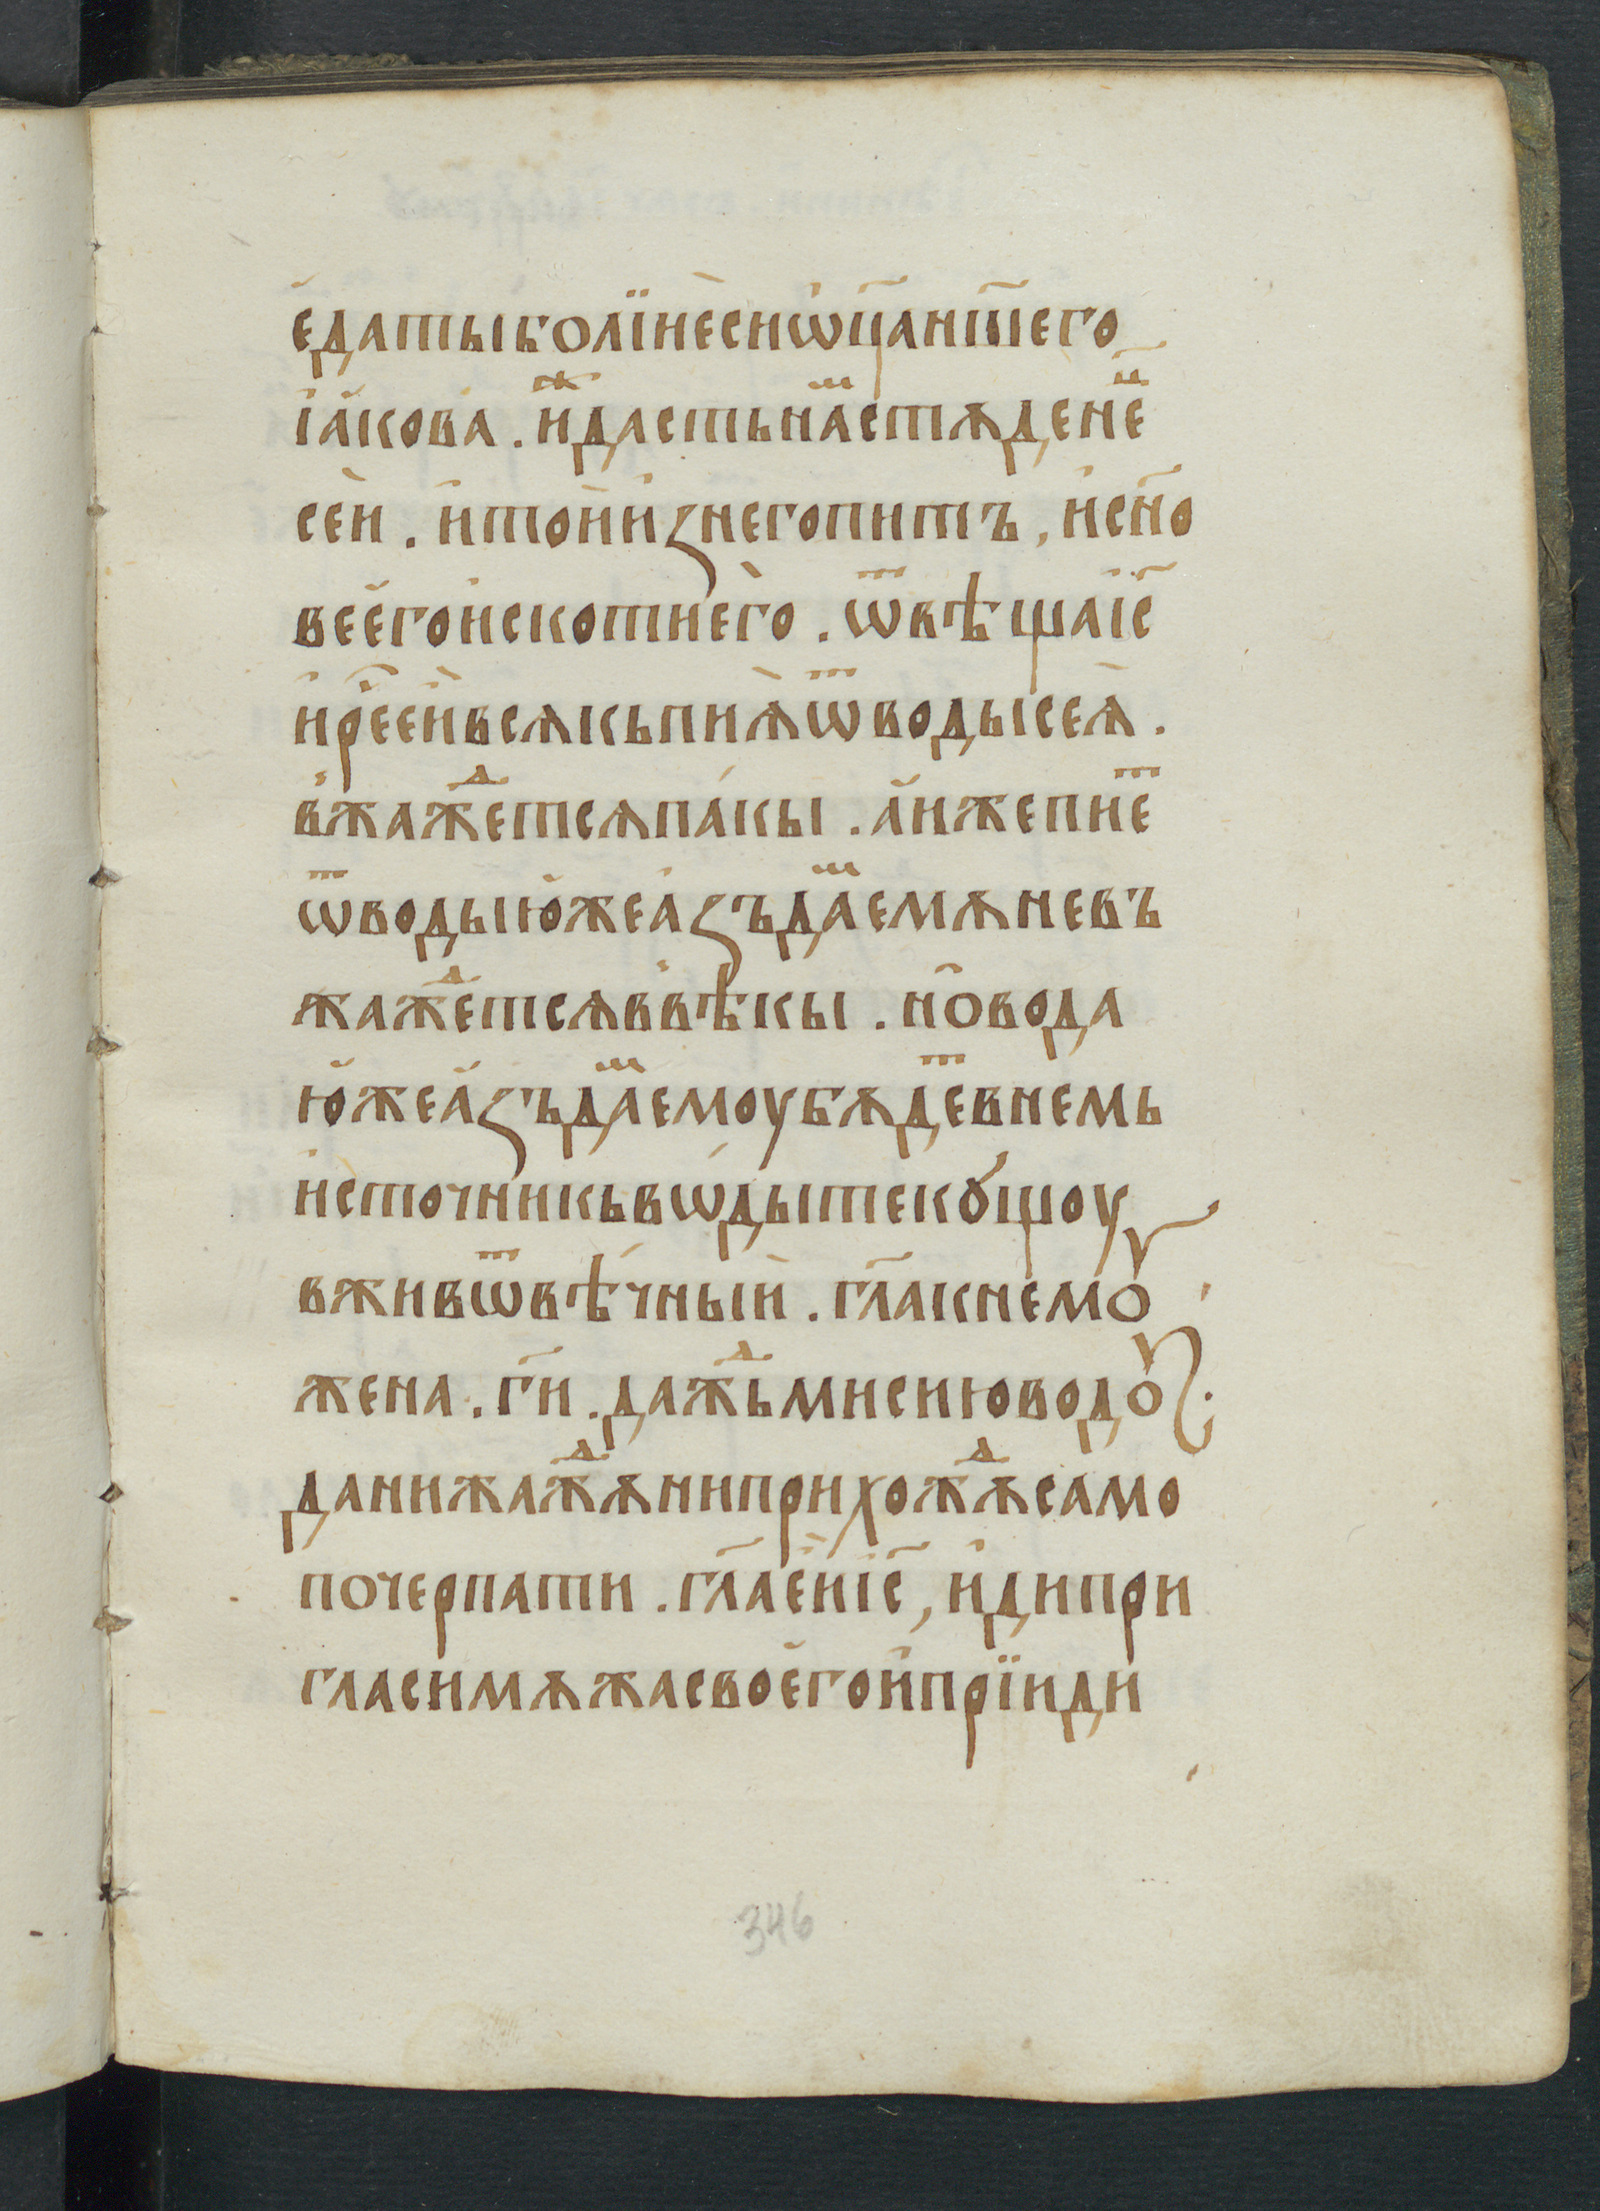 є҆датыболїинѐсѝѡ҆ц҃анш҃его
і҆а҆кова . и҆ⷤдастьнаⷨстѫденеⷰ҇
сен . и҆тои҆и҆знегопитъ , и҆сн҃о
вееѐгои҆скотнего . ѿвѣщаі҆с҃
и҆р҃еєи҆всѧкьпиѧ҆ѿводысеѧ̀ .
вжаⷤⷣетсѧпа́кы . а҆ижепиеⷮ
ѿводыю҆жеа҆зъдаⷨемѫневъ
жаⷤⷣетсѧввѣкы . но҆вода
ю҆жеа҆зъдаⷨемоубѫдеⷮвнемь
и҆сточникьвѡ́дытекꙋщоу
вживѿвѣчныи҆ . гл҃акнемꙋ
жена . ги҃ . даⷤⷣьмисиюводꙋ .
данижаⷤⷣѫниприхоⷤⷣѫсамо
почерпати . гл҃аеи҆і҆с҃ , и҆дипри
гласимѫжасвоегои҆прїиди
346